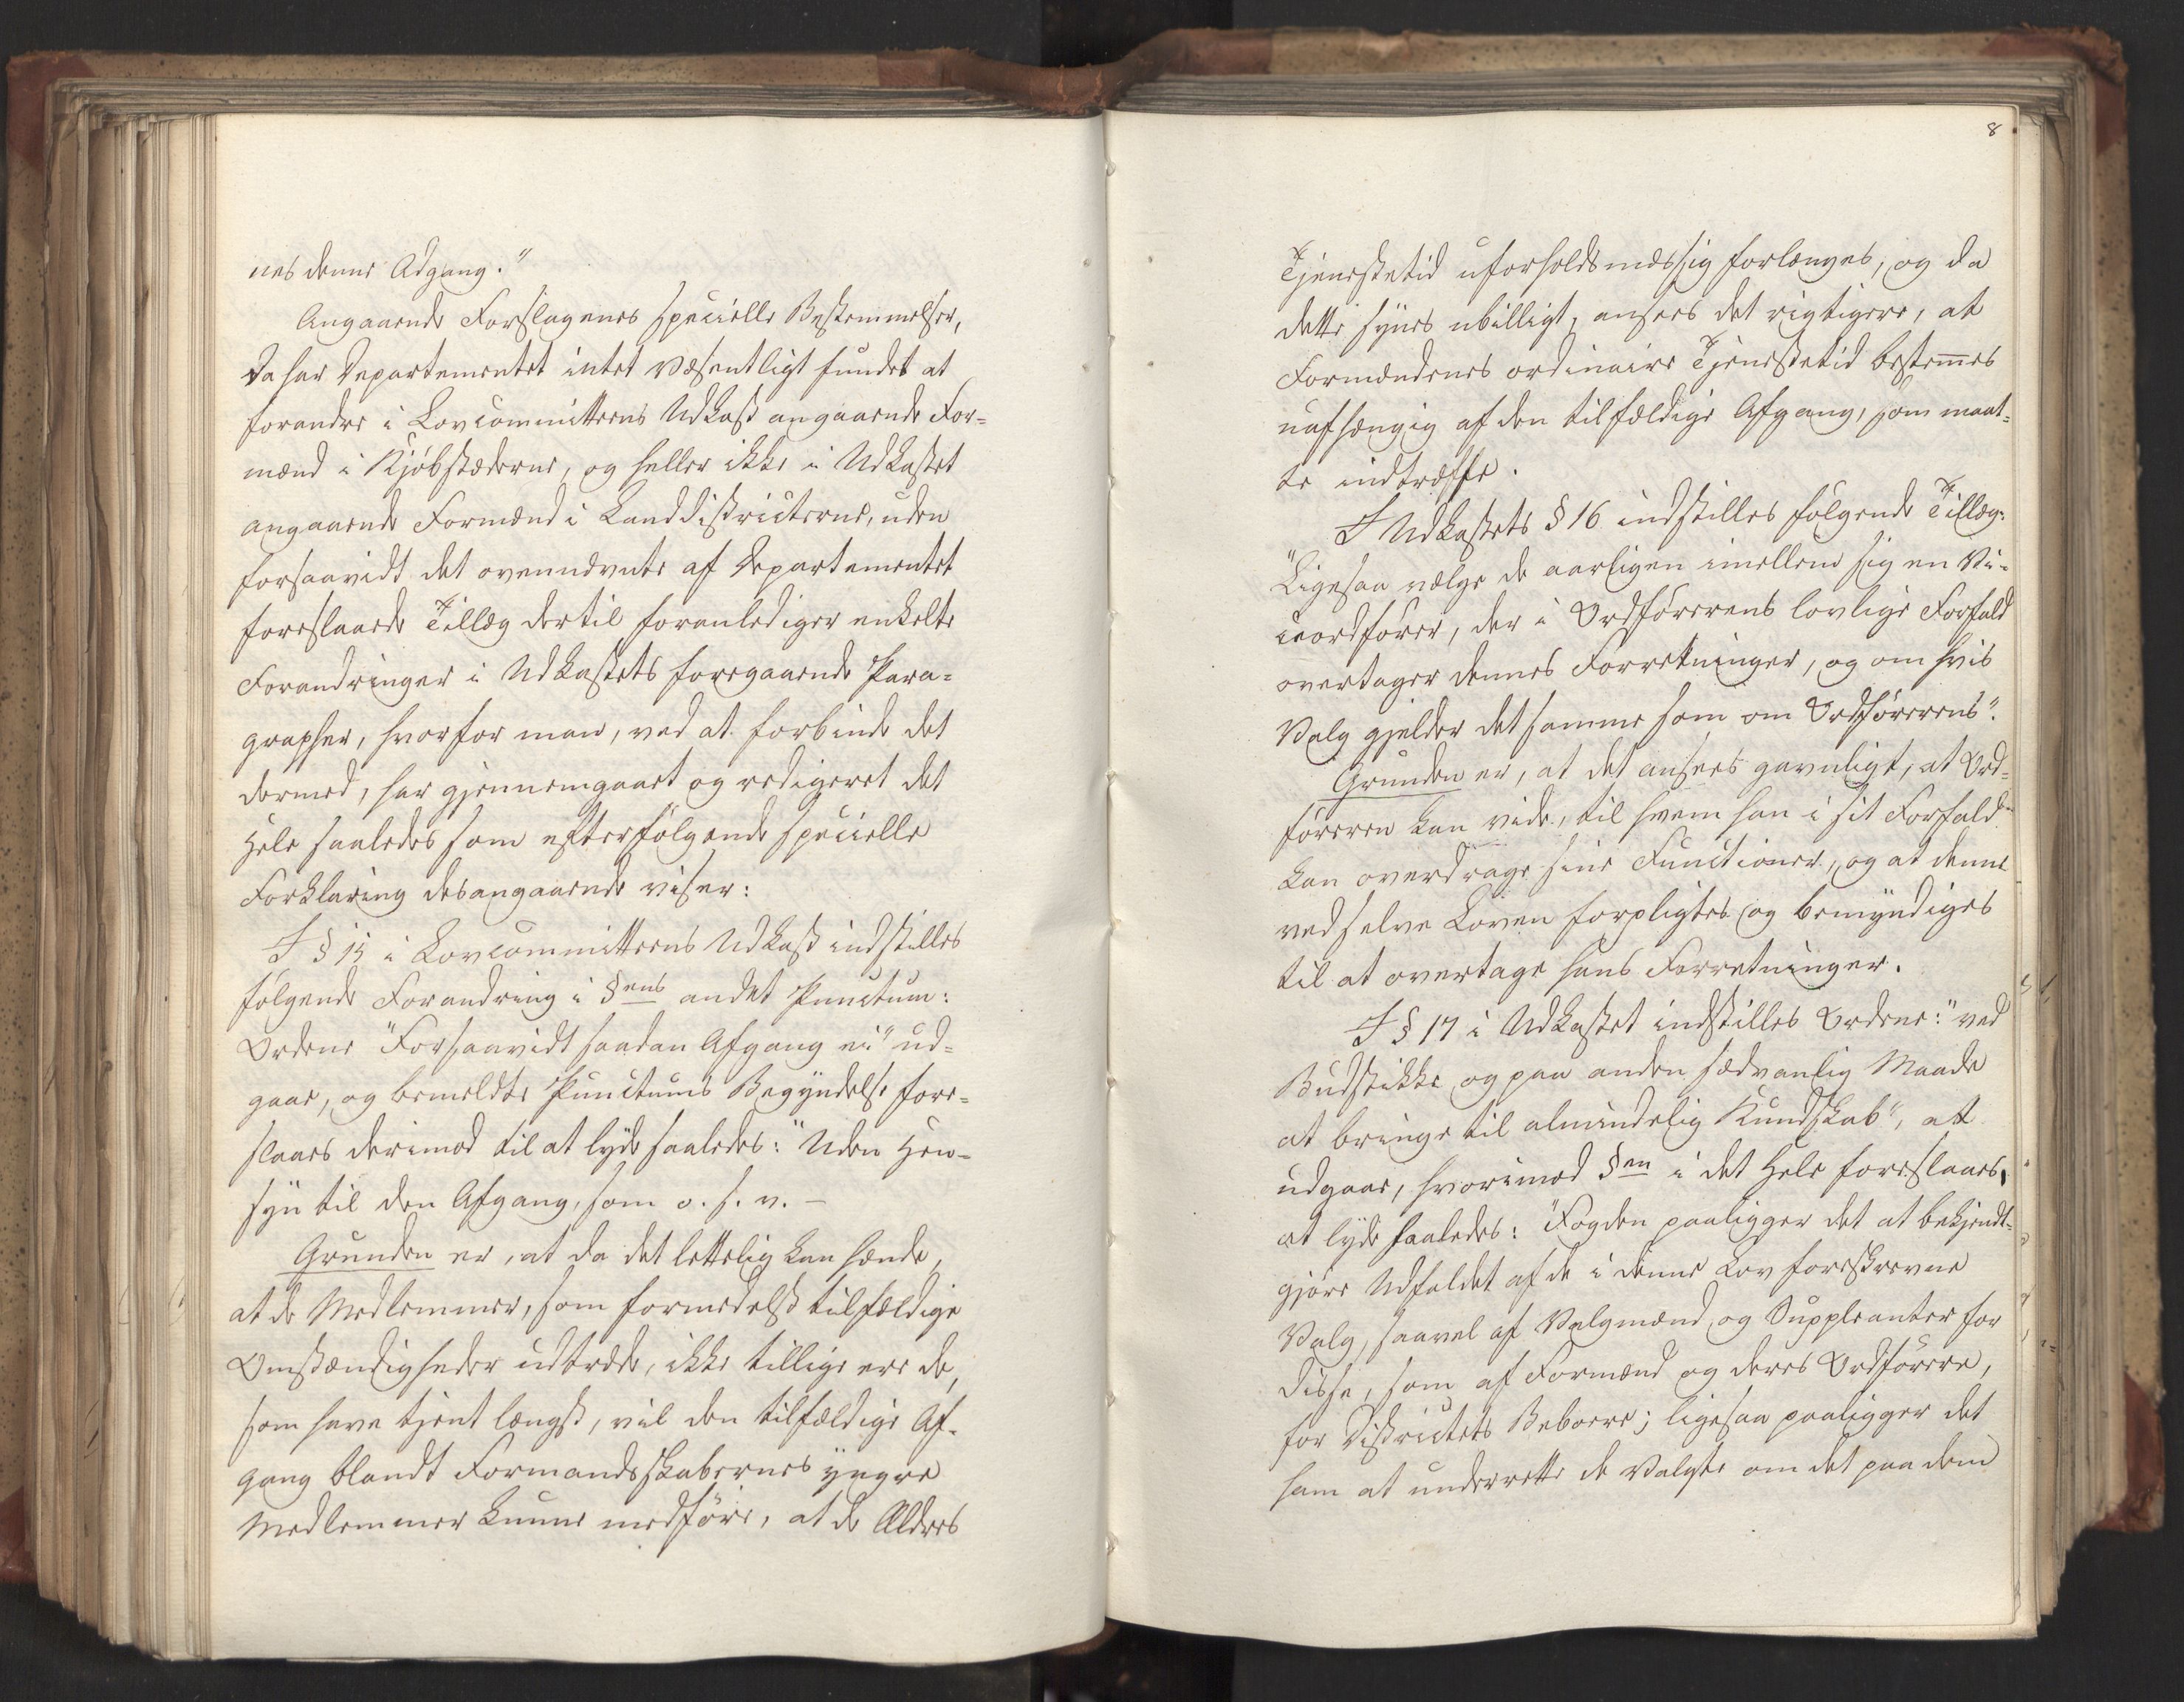 nes denne Adgang."
Angaaende Forslagenes specielle Bestemmelser,
da har Departementet intet væsentligt fundet at
forandre i Lovcommitteens Udkast angaaende For-
mænd i Kjøbstæderne, og heller ikke i Udkastet
angaaende Formænd i Landdistricterne, uden
forsaavidt det ovennævnte af Departementet
foreslaaede Tillæg dertil foranlediger enkelte
Forandringer i Udkastets foregaaende Para-
grapher, hvorfor man, ved at forbinde det
dermed, har gjennemgaaet og redigeret det
Hele saaledes som efterfølgende specielle
Forklaring desangaaende viser:
I § 15 i Lovcommitteens Udkast indstilles
følgende Forandring i §ens andet Punctum:
Ordene "Forsaavidt saadan Afgang ei" ud-
gaae, og bemeldte Punctums Begyndelse fore-
slaaes derimod til at lyde saaledes: "Uden Hen-
syn til den Afgang, som o. s. v. –
Grunden er, at da det lettelig kan hænde,
at de Medlemmer, som formedelst tilfældige
Omstændigheder udtræde, ikke tillige ere de,
som have tjent længst, vil den tilfældige Af-
gang blandt Formandsskabernes yngre
Medlemmer kunne medføre, at de Ældres
8
Tjenestetid uforholdsmæssig forlænges, og da
dette synes ubilligt, ansees det rigtigere, at
Formændenes ordinaire Tjenestetid bestemes
uafhængig af den tilfældige Afgang, som maat-
te indtræffe.
I Udkastets § 16 indstilles følgende Tillæg:
"Ligesaa vælge de aarligen imellem sig en Vi-
ceordfører, der i Ordførerens lovlige Forfald
overtager dennes Forretninger, og om hvis
Valg gjelder det samme som om Ordførerens".
Grunden er, at det ansees gavnligt, at Ord-
føreren kan vide, til hvem han i sit Forfald
kan overdrage sine Functioner, og at denne
ved selve Loven forpligtes og bemyndiges
til at overtage hans Forretninger.
I § 17 i Udkastet indstilles Ordene: "ved
Budstikke og paa anden sædvanlig Maade
at bringe til almindelig Kundskab", at
udgaae, hvorimod §en i det Hele foreslaaes,
at lyde saaledes: "Fogden paaligger det at bekjendt-
gjøre Udfaldet af de i denne Lov foreskrevne
Valg, saavel af Valgmænd og Suppleanter for
disse, som af Formænd og deres Ordførere,
for Districtets Beboere; ligesaa paaligger det
ham at underrette de Valgte om det paa dem